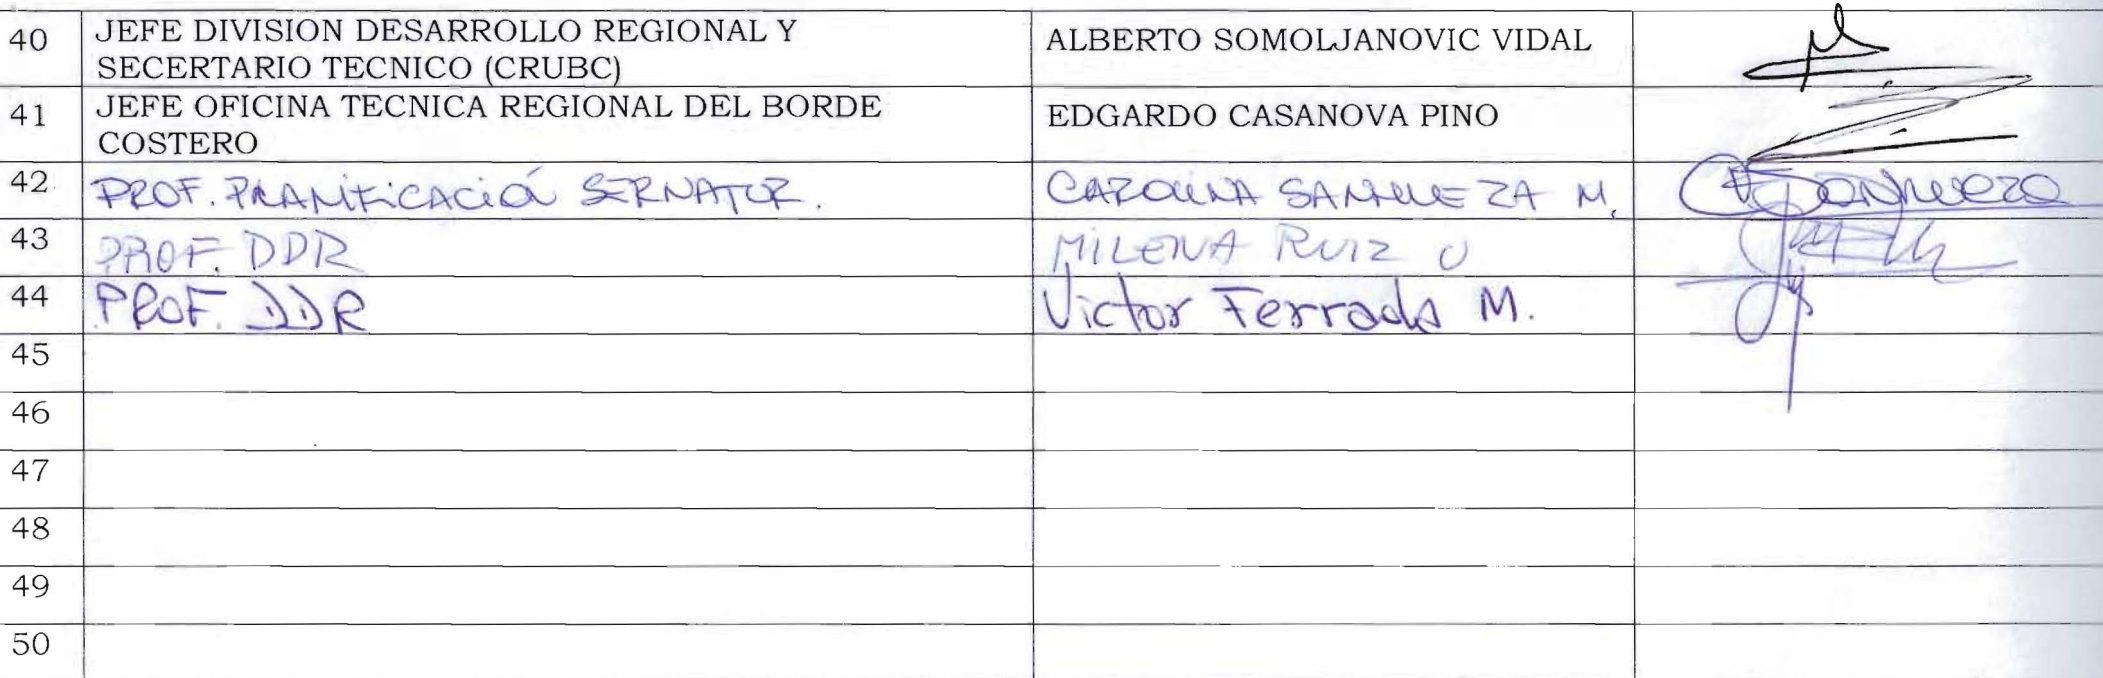 40 JEFE DIVISION DESARROLLO REGIONAL Y SECERTARIO TECNICO (CRUBC) ALBERTO SOMOLJANOVIC VIDAL
41 JEFE OFICINA TECNICA REGIONAL DEL BORDE COSTERO EDGARDO CASANOVA PINO
42 PROF. PLANIFICACIÓN SERNATUR. CAROLINA SANHUEZA M. Sanhueza
43 PROF. DDR MILENA RUIZ O
44 PROF. DDR Victor Ferrada M.
45
46
47
48
49
50